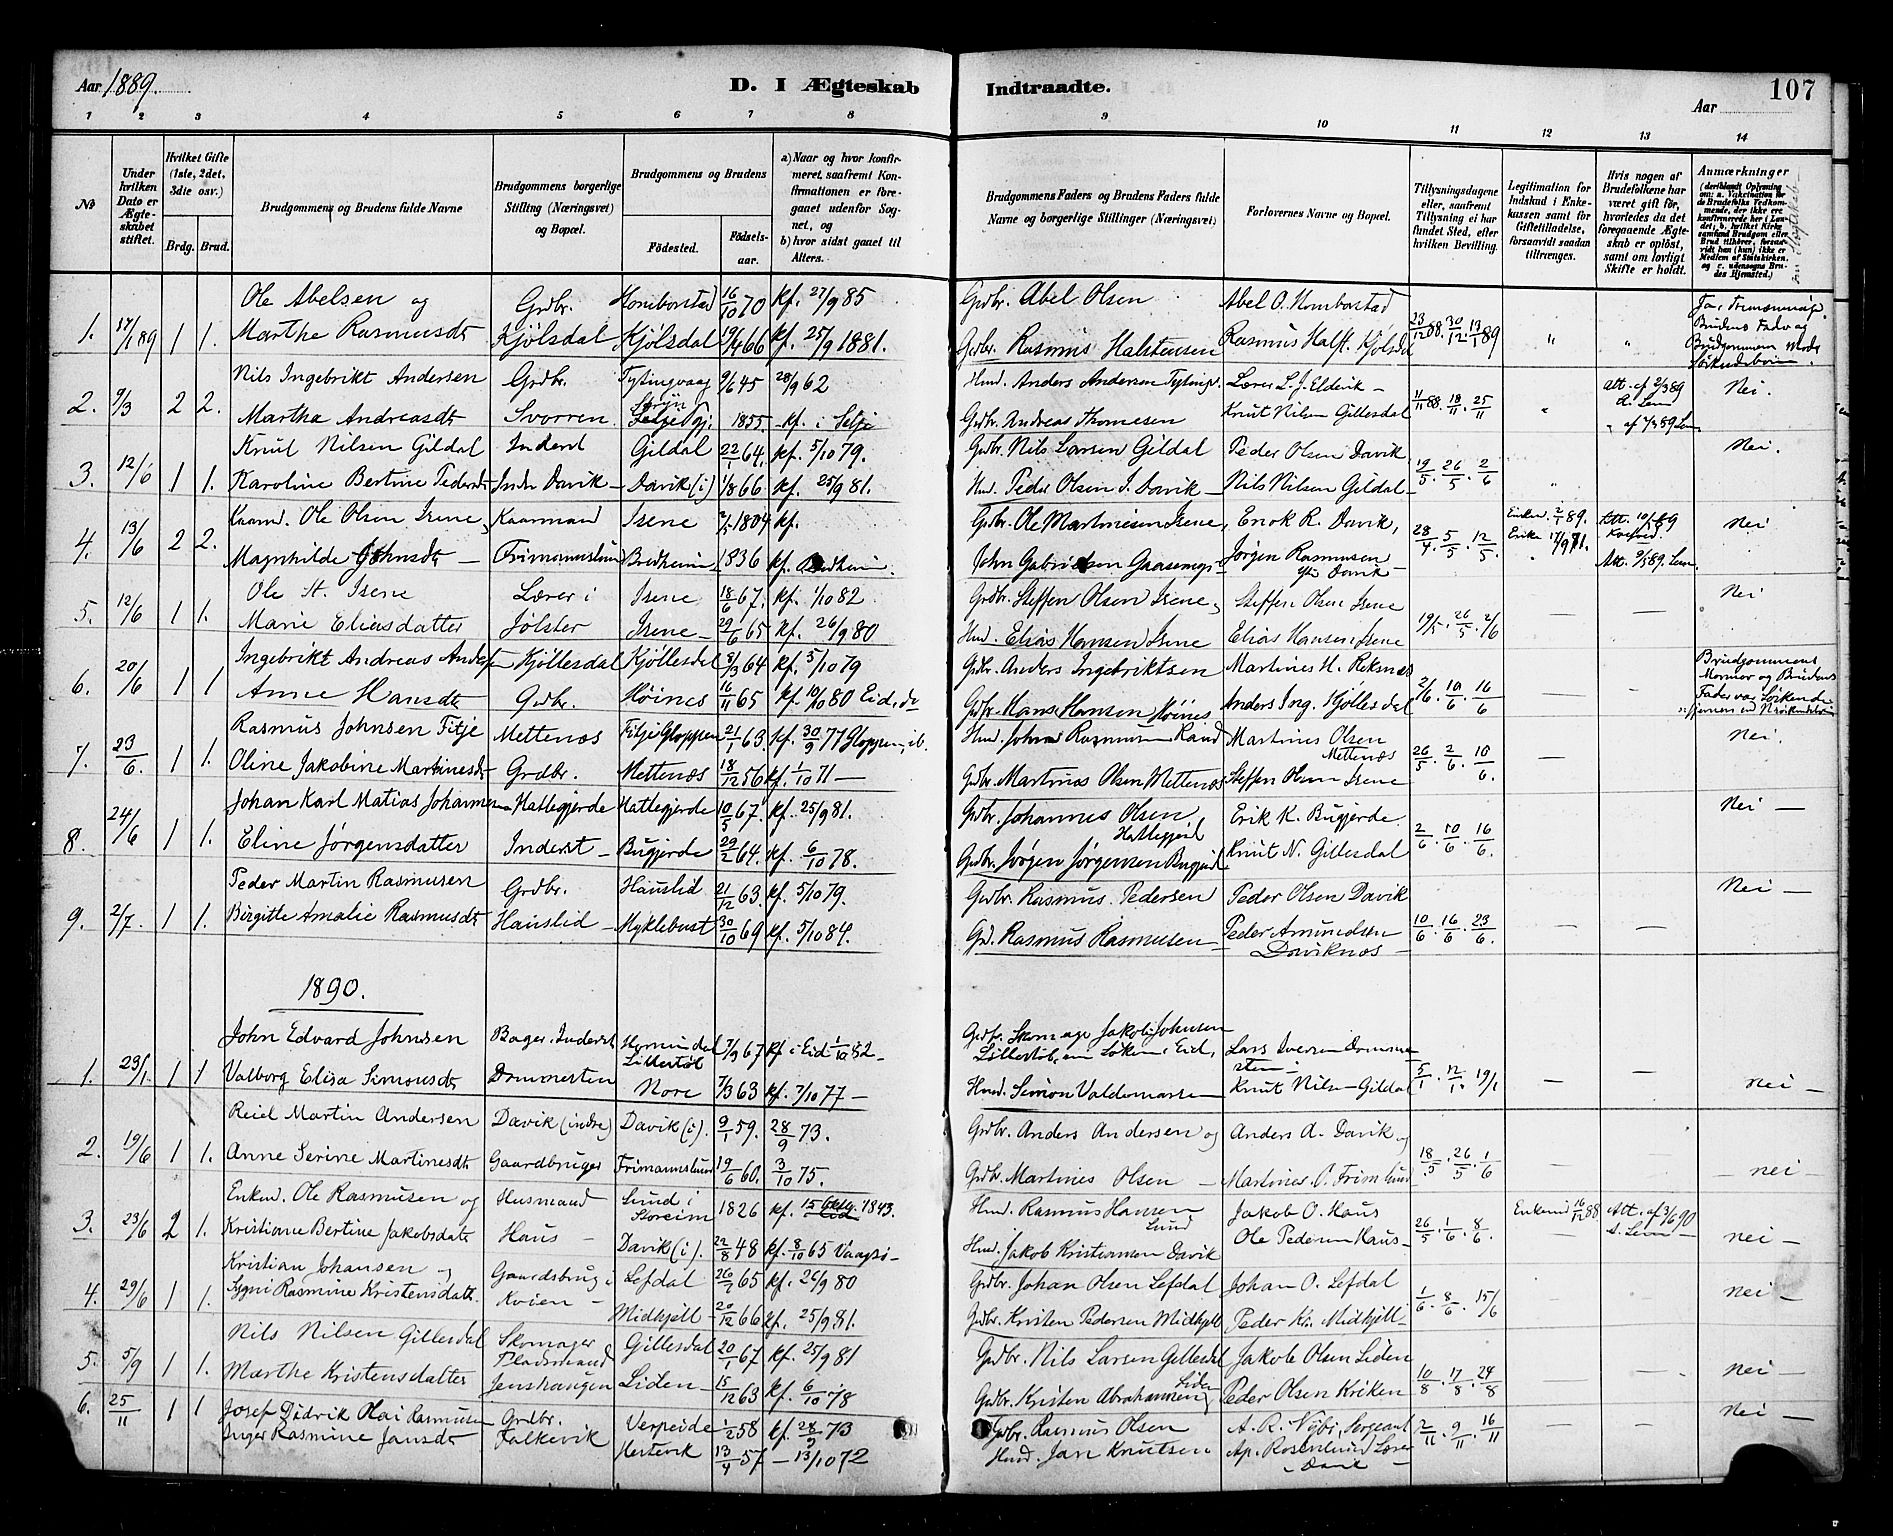 Aar 1889.
D. I Ægteskab Indtraadte.
Aar
107
1 2 3 4 5 6 7 8 9 10 11 12 13 14
No
Under hvilken Dato er Ægteskabet stiftet.
Hvilket Gifte (1ste, 2det, 3die osv.)
Brdg. Brud.
Brudgommens og Brudens fulde Navne
Brudgommens borgerlige Stilling (Næringsvei) og Bopæl.
Brudgommens og Brudens
Fødested.
Fødselsaar.
a) Naar og hvor konfirmeret, saafremt Konfirmationen er foregaaet udenfor Sognet, og
b) hvor sidst gaaet til Alters.
Brudgommens Faders og Brudens Faders fulde Navne og borgerlige Stillinger (Næringsvei)
Forlovernes Navne og Bopæl.
Tillysningsdagene eller, saafremt Tillysning ei har fundet Sted, efter hvilken Bevilling.
Legitimation for Indskud i Enkekassen samt for Giftetilladelse, forsaavidt saadan tiltrænges.
Hvis nogen af Brudefolkene har været gift før, hvorledes da det foregaaende Ægteskab er opløst, samt om lovligt Skifte er holdt.
Anmærkninger
1. 17/1 89 1 1. Ole Abelsen og Grdbr. Homborstad 16/10 70 kf. 27/9 85 Grdbr. Abel Olsen Abel O. Homborstad 23/12 88. 30/12. 13/1 89
Marthe Rasmusdt Kjölsdal Kjölsdal 19/4 66 kf. 25/9 1881. Grdbr. Rasmus Halstensen Rasmus Halst. Kjölsdal
Brudens Fader og Brudgommens Moder Söskendebörn.
2. 9/3 2 2. Nils Ingebrikt Andersen Grdbr. Tytingvaag 9/6 45 28/9 62 Husd. Anders Andersen Tytingv. Lærer L. J. Eldevik - 11/11 88. 18/11. 25/11 Att. af 2/3 89 A. Lem Nei.
Martha Andreasdt Svorren Stryn 1855 - kf. i Selje Grdbr. Andreas Thomesen Knut Nilsen Gillesdal
3. 12/6 1 1. Knut Nilsen Gildal Inderst Gildal 22/1 64. kf. 5/10 79. Grdbr. Nils Larsen Gildal Peder Olsen Davik 19/5. 26/5. 2/6 Nei.
Karoline Bertine Pedersdt Indr Davik - Davik (i) 1/8 66 kf. 25/9 81. Husd. Peder Olsen I. Davik - Nils Nilsen Gildal -
4. 13/6 2 2. Kaarmd. Ole Olsen Isene, Kaarmand Isene 1804 kf. Grdbr. Ole Martinesen Isene, Enok R. Davik, 28/4. 5/5. 12/5 Enkem. 2/1 89. Nei
Magnhilde Johnsdt - Frimannslund Bredheim 1836 kf. Bredheim. John Gabrielsen Jörgen Rasmusen ytre Davik Att. 9/5 89. Lem
5. 12/6 1 1. Ole St. Isene Lærer i Isene 18/6 67. kf. 1/10 82 Grdbr. Steffen Olsen Isene, Steffen Olsen Isene 19/5. 26/5. 2/6 — — Nei
Marie Eliasdatter Jölster Isene - 29/6 65 kf. 26/9 80 Husd. Elias Hansen Isene Elias Hansen Isene
6. 20/6 1 1 Ingebrikt Andreas Kjöllesdal Kjöllesdal 8/3 64 kf. 5/10 79 Grdbr. Anders Ingebriktsen Martines H. Reksnæs 2/6. 10/6. 16/6 — Brudgommens Mormor og Brudens Fader var Söskende
Anne Hansdt Grdbr. Höines 16/11 65 kf. 10/10 80 Eid, do Grdbr. Hans Hansen Höines Anders Ing. Kjöllesdal
7. 23/6. 1 1. Rasmus Johnsen Fitje Mettenæs Fitje Gloppen 21/1 63. kf. 30/9 77 Gloppen, ib. Husd. John Rasmusen Rand Martinus Olsen Mettenæs 26/5. 2/6. 10/6. — Nei.
Oline Jakobine Martinesdt Grdbr. Mettenæs 18/12 56 kf. 1/10 71 — Grdbr. Martines Olsen Mettenæs Steffen Olsen Isene
8. 24/6 1 1. Johan Karl Matias Johannesen Hattegjerde Hattegjerde 10/5 67. kf. 25/9 81. Grdbr. Johannes Olsen Hattegjerd Erik K. Bugjerde 2/6. 10/6. 16/6. Nei —
Eline Jörgensdatter Inderst - Bugjerde 29/2 64. kf. 6/10 78. Grdbr. Jörgen Jörgensen Bugjerd Knut N. Gillesdal
9. 2/7. 1 1. Peder Martin Rasmusen Grdbr. Hauslid 21/12 63. kf. 5/10 79. Grdbr. Rasmus Pedersen Peder Olsen Davik 10/6. 16/6. 23/6. — — Nei —
Birgitte Amalie Rasmusdt Hauslid - Myklebust 30/10 69 kf. 5/10 84. Grd. Rasmus Rasmusen Peder Amundsen Daviknæs —
1890.
1. 23/1. 1 1 John Edvard Johnsen Bager. Inderst Hornindal Lillestöl 7/9 67 kf i Eid 1/10 82 - Grdbr. Skomager Jakob Johnsen Lillestöl, Eid, Lars Iversen Domme-sten — 5/1. 12/1. 19/1 — — nei —
Valborg Elisa Simonsdt Dommesten Nore 7/3 63 kf. 7/10 77 — Husd. Simon Valdemarsen Knut Nilsen Gildal
2. 19/6 1 1. Reiel Martin Andersen Davik (indre) Davik (i). 9/1 59. 28/9 73. Grdbr. Anders Andersen og Anders A. Davik og 18/5. 26/5. 1/6 — nei —
Anne Serine Martinesdt Gaardbruger Frimannslund 19/6 60. 3/10 75. Grdbr. Martines Olsen — Martines O. Frimlund
3. 23/6 2 1. Enkmd. Ole Rasmusen og Husmand Lund i Storeim 1826 kf. 1843. Husd. Rasmus Hansen Lund Jakob O. Haus 26/5. 1/6. 8/6. Enkemd 16/12 88 Att. af 3/6 90 A. Lem — nei —
Kristiane Bertine Jakobsdatt Haus — Davik (i). 22/8 48 kf. 8/10 65 Vaagsö - Husd. Jakob Kristiansen Davik Ole Pedersen Haus -
4. 29/6 1 1. Kristian Johansen og Gaardsbrug i Lefdal 65 kf. 26/9 80 Grdbr. Johan Olsen Lefdal Johan O. Lefdal 1/6. 8/6. 15/6 — nei —
Rasmine Kristensdatt. Kvien — Midhjell - 20/12 66 kf. 25/9 81. Grdbr. Kristen Pedersen Midhjell Peder Kr. Midhjell -
5. 5/9 1 1. Nils Nilsen Gillesdal Skomager Pladsmand Gillesdal 20/1 67 kf. 25/9 81 Grdbr. Nils Larsen Gillesdal Jakob Olsen Liden 10/8. 17/8. 24/8 — — nei —
Marthe Kristensdatter Jenshaugen Liden - 15/12 63 kf. 6/10 78 Grdbr. Kristen Abrahamsen Liden Peder Olsen Kriken
6. 25/11 1 1 Josef Didrik Olai Rasmusen Grdbr. Verpeide 1/2 58 kf. 28/9 73 Grdbr. Rasmus Olsen A. R. Nybö, Sergeant 2/11. 9/11. 16/11 — — nei —
Inger Rasmine Jansdt Falkevik Hestevik 13/4 57 — 13/10 72 Husd. Jan Knutsen Ap. Rosenlund Lærer